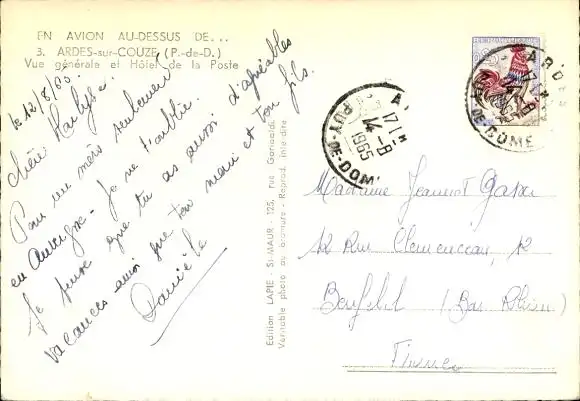 EN AVION AU-DESSUS DE...
3. ARDES-sur-COUZE (P.-de-D.)
Vue générale et Hôtel de la Poste
le 12/8/65.
Chère
Pour un mois seulement
en Auvergne - Je ne t'oublie.
Je pense que tu as aussi d'agréables
vacances ainsi que ton mari et ton fils.
Danièle
Edition LAPIE - ST-MAUR - 125, rue Garibaldi
Véritable photo au bromure - Reprod. interdite
ARD
17 H
PUY-DE-DOME
A
17 H
14-8
1965
PUY-DE-DOM
Madame Jeannot
12 Rue Clemenceau, 12
Benfeld (Bas Rhin)
France